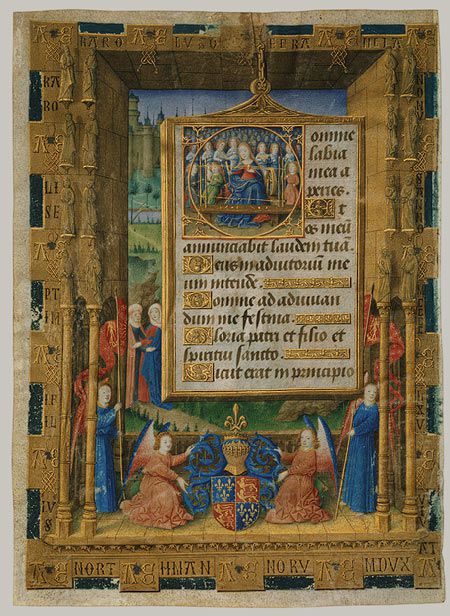 KARO LVSD EFRA NCIA
Domine
labia
mea a
peries.
Et
os meū
annunciabit laudem tuā.
Deus in adiutoriū me
um intende.
Domine ad adiuvan
dum me festina.
Gloria patri et filio et
spiritui sancto.
Sicut erat in principio
KA
RO
LI
SE
PT
IM
I
FIL
IVS
NORT HMAN NORV MDVX